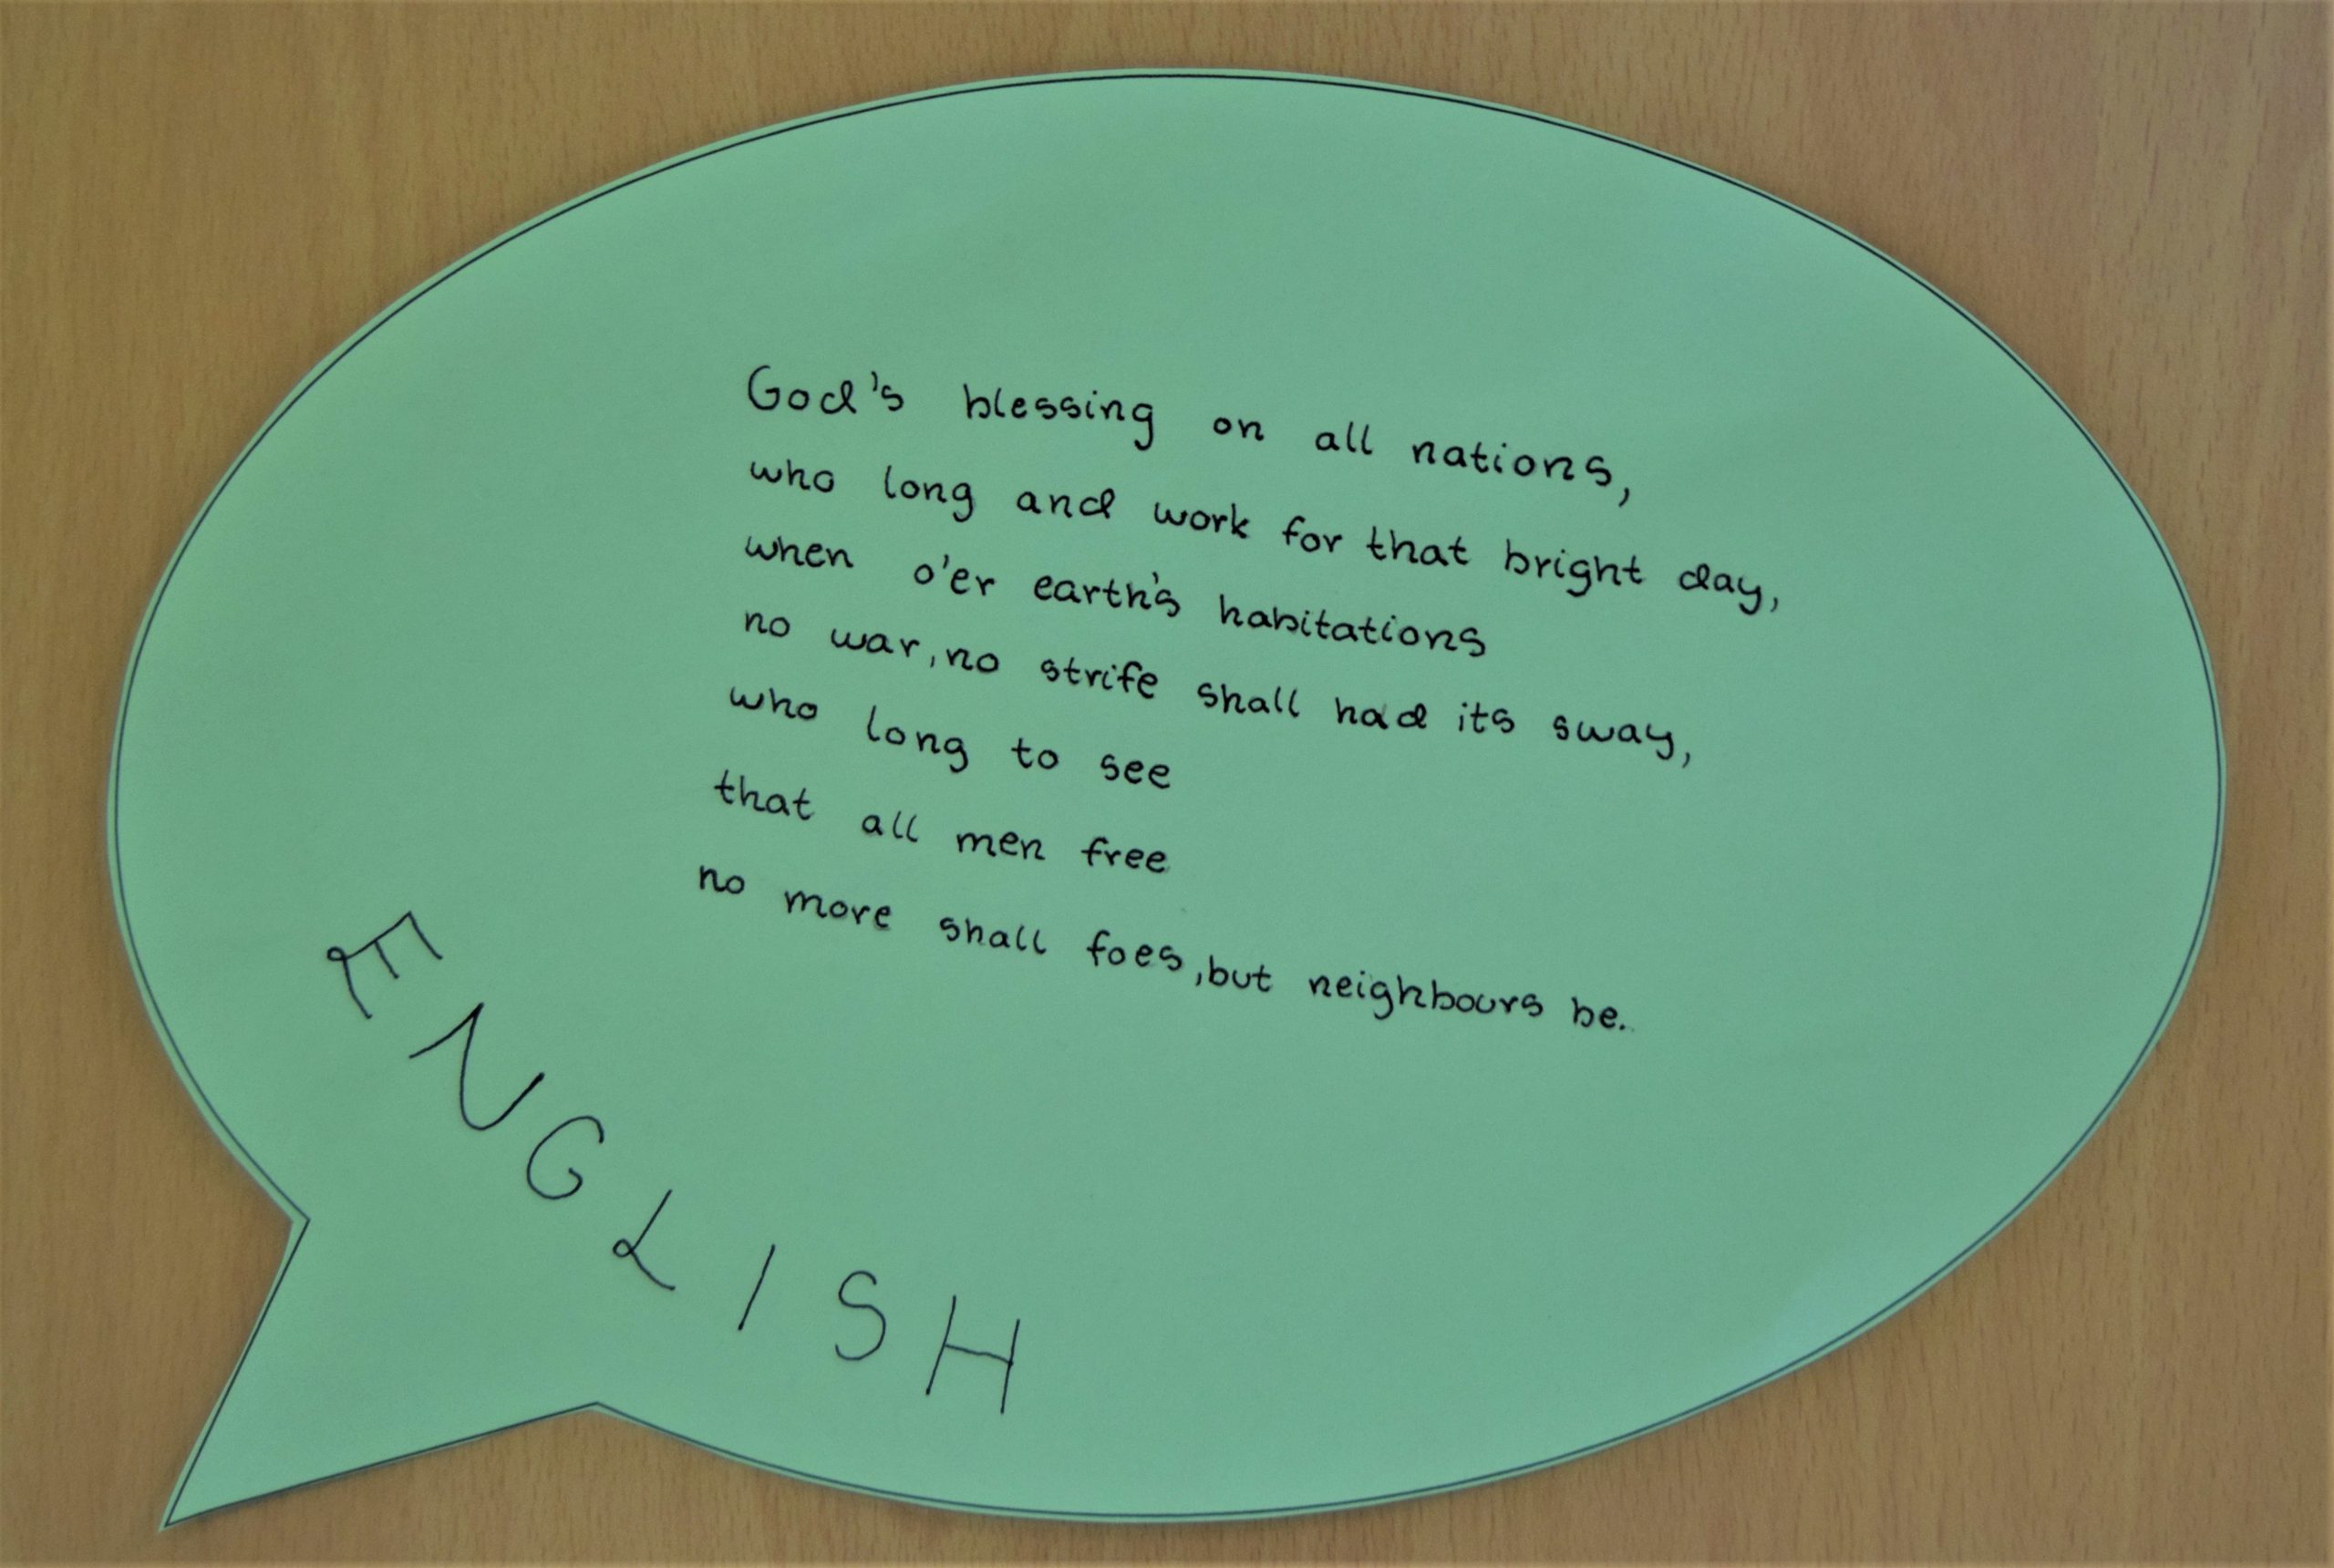 God's blessing on all nations,
who long and work for that bright day,
when o'er earth's habitations
no war, no strife shall had its sway,
who long to see
that all men free
no more shall foes, but neighbours be.
ENGLISH